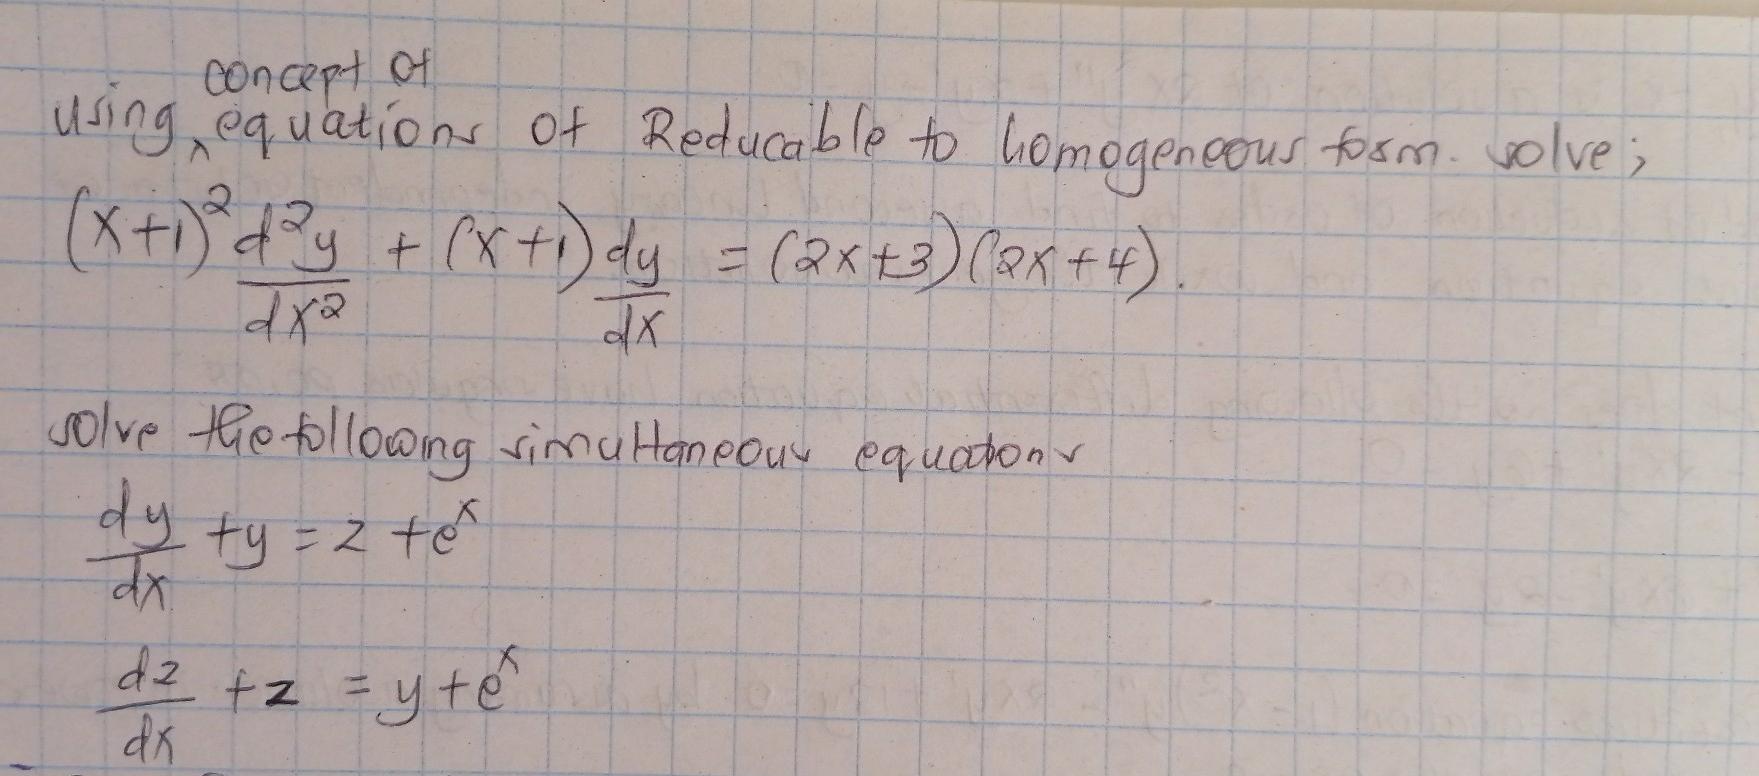 concept of
using ‸ equations of Reducable to homogeneous form. solve;
(x+1)² d²y/dx² + (x+1) dy/dx = (2x+3)(2x+4).
solve the following simultaneous equations
dy/dx + y = z + eˣ
dz/dx + z = y + eˣ